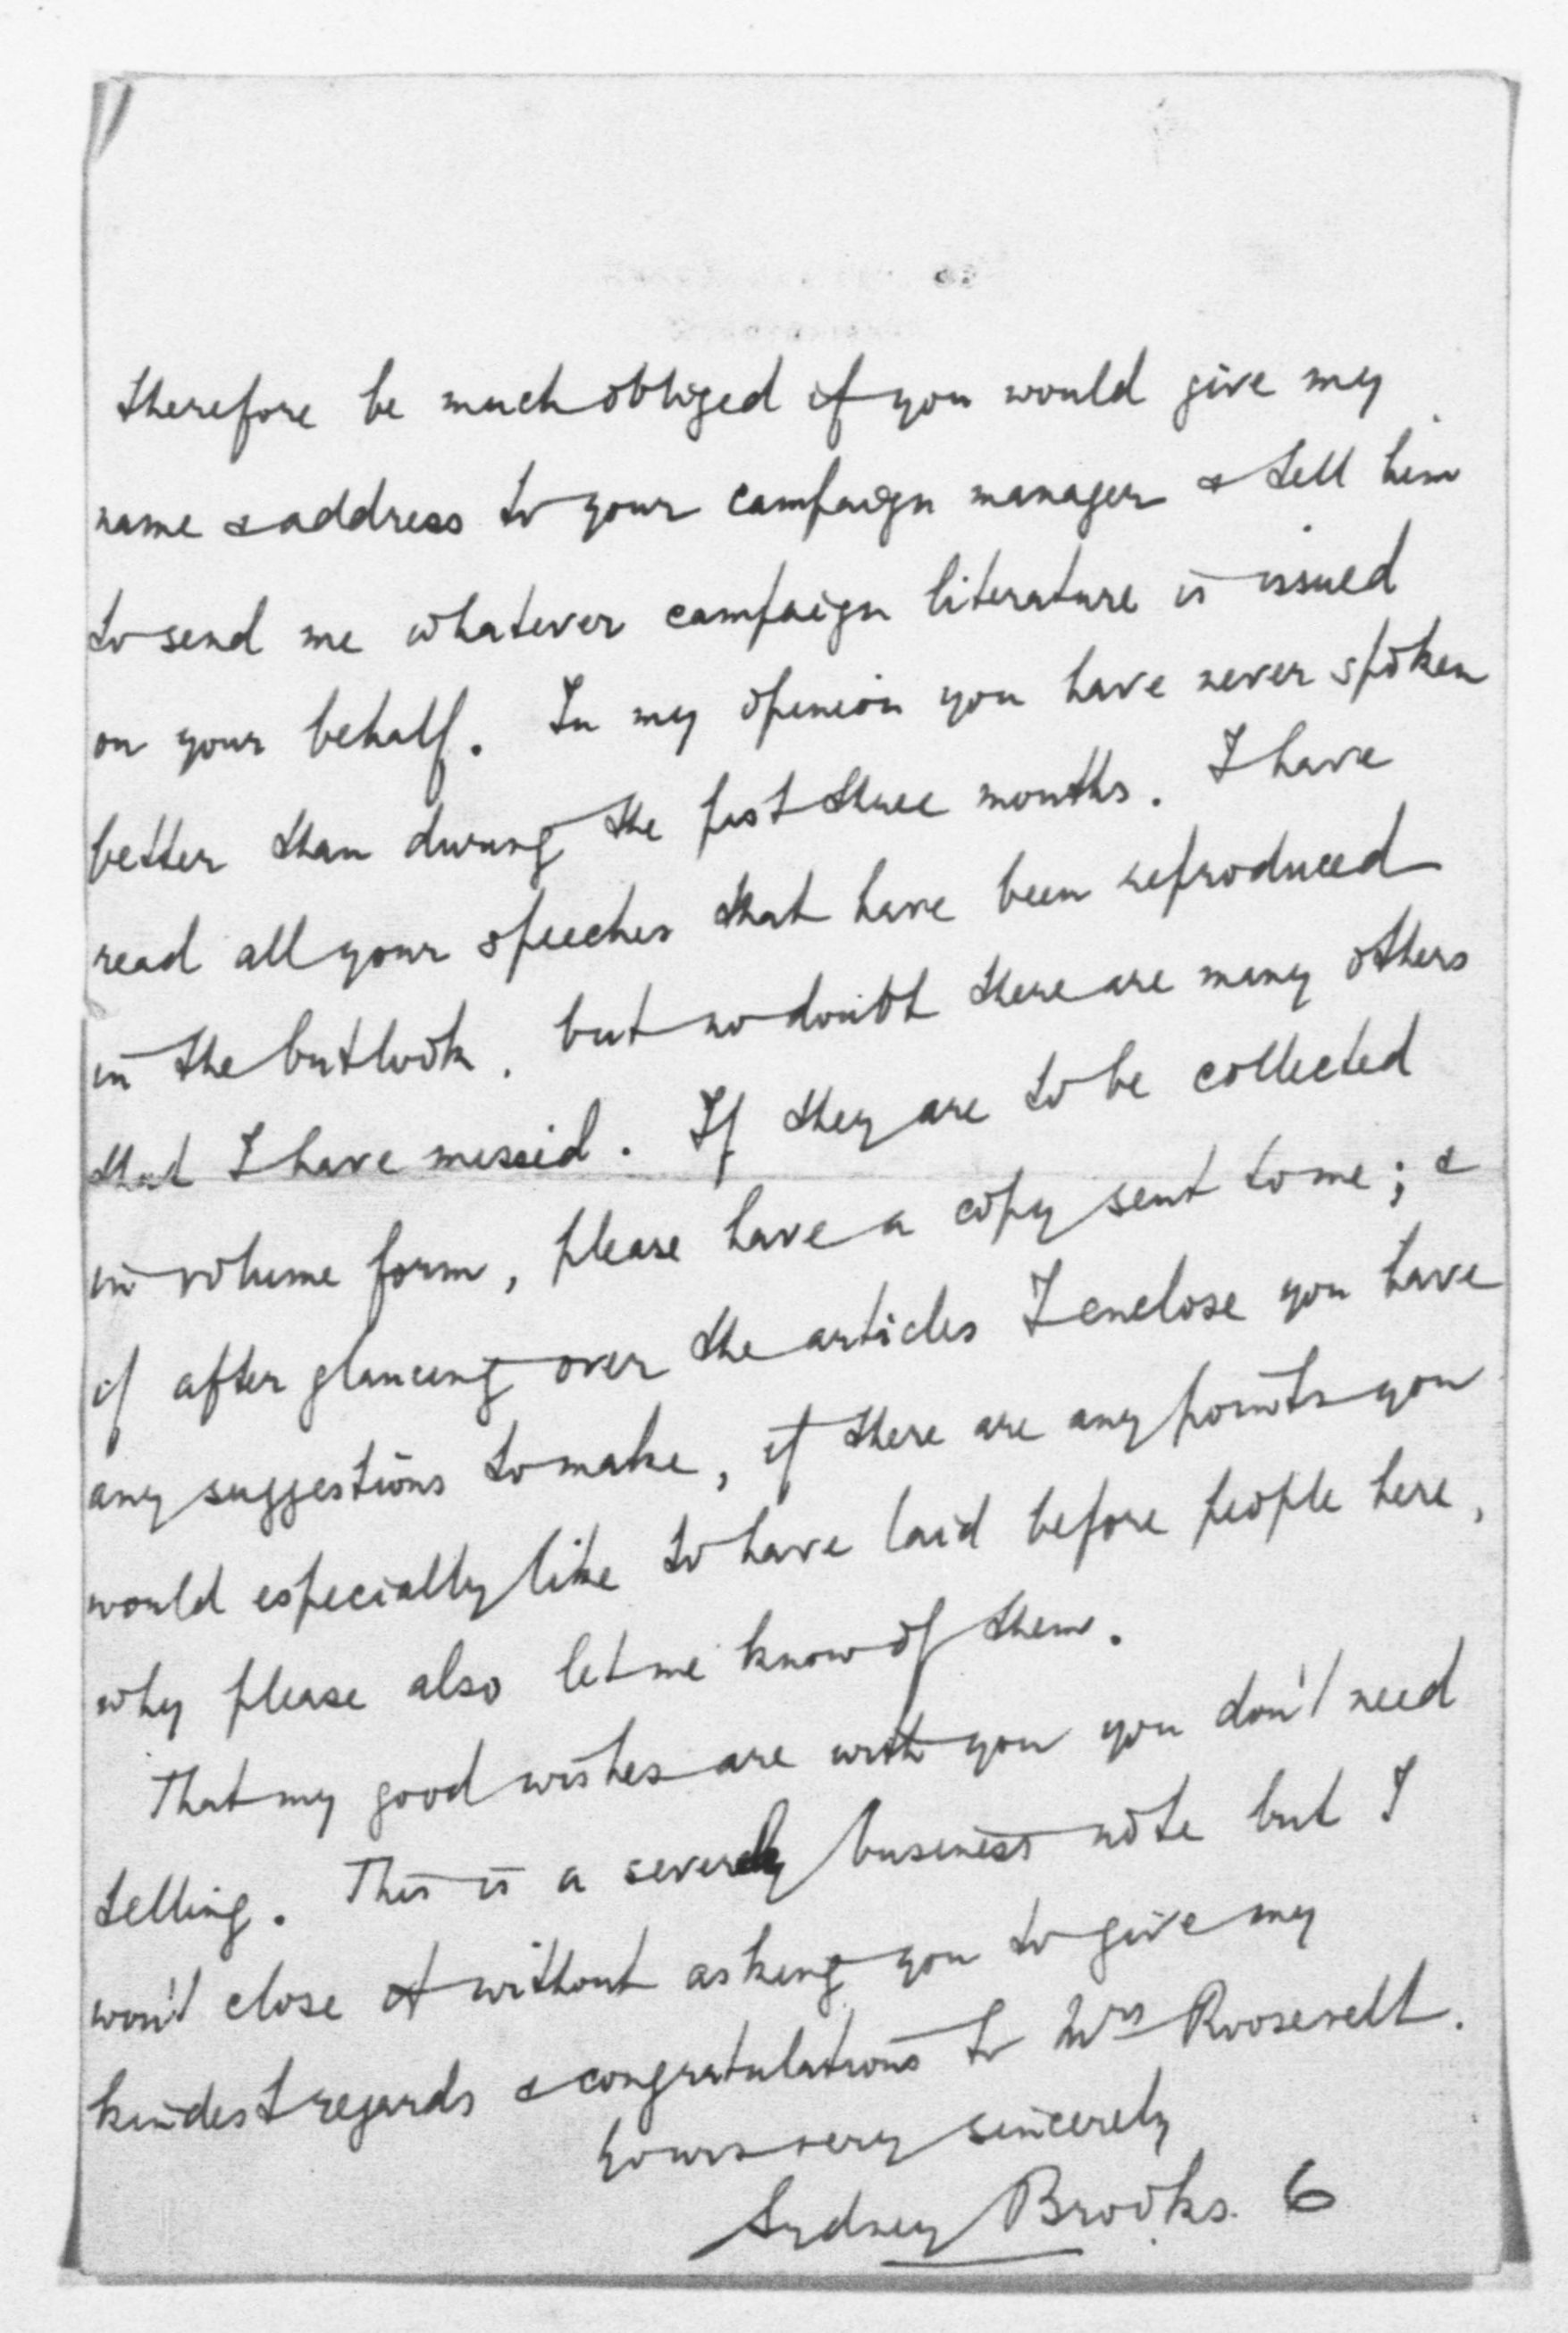 therefore be much obliged if you would give my
name & address to your campaign manager & tell him
to send me whatever campaign literature is issued
on your behalf. In my opinion you have never spoken
better than during the past three months. I have
read all your speeches that have been reproduced
in the Outlook, but no doubt there are many others
that I have missed. If they are to be collected
in volume form, please have a copy sent to me; &
if after glancing over the articles I enclose you have
any suggestions to make, if there are any points you
would especially like to have laid before people here,
why please also let me know of them.
That my good wishes are with you you don't need
telling. This is a severely business note but I
won't close it without asking you to give my
kindest regards & congratulations to Mrs Roosevelt.
Yours very sincerely
Sydney Brooks. 6